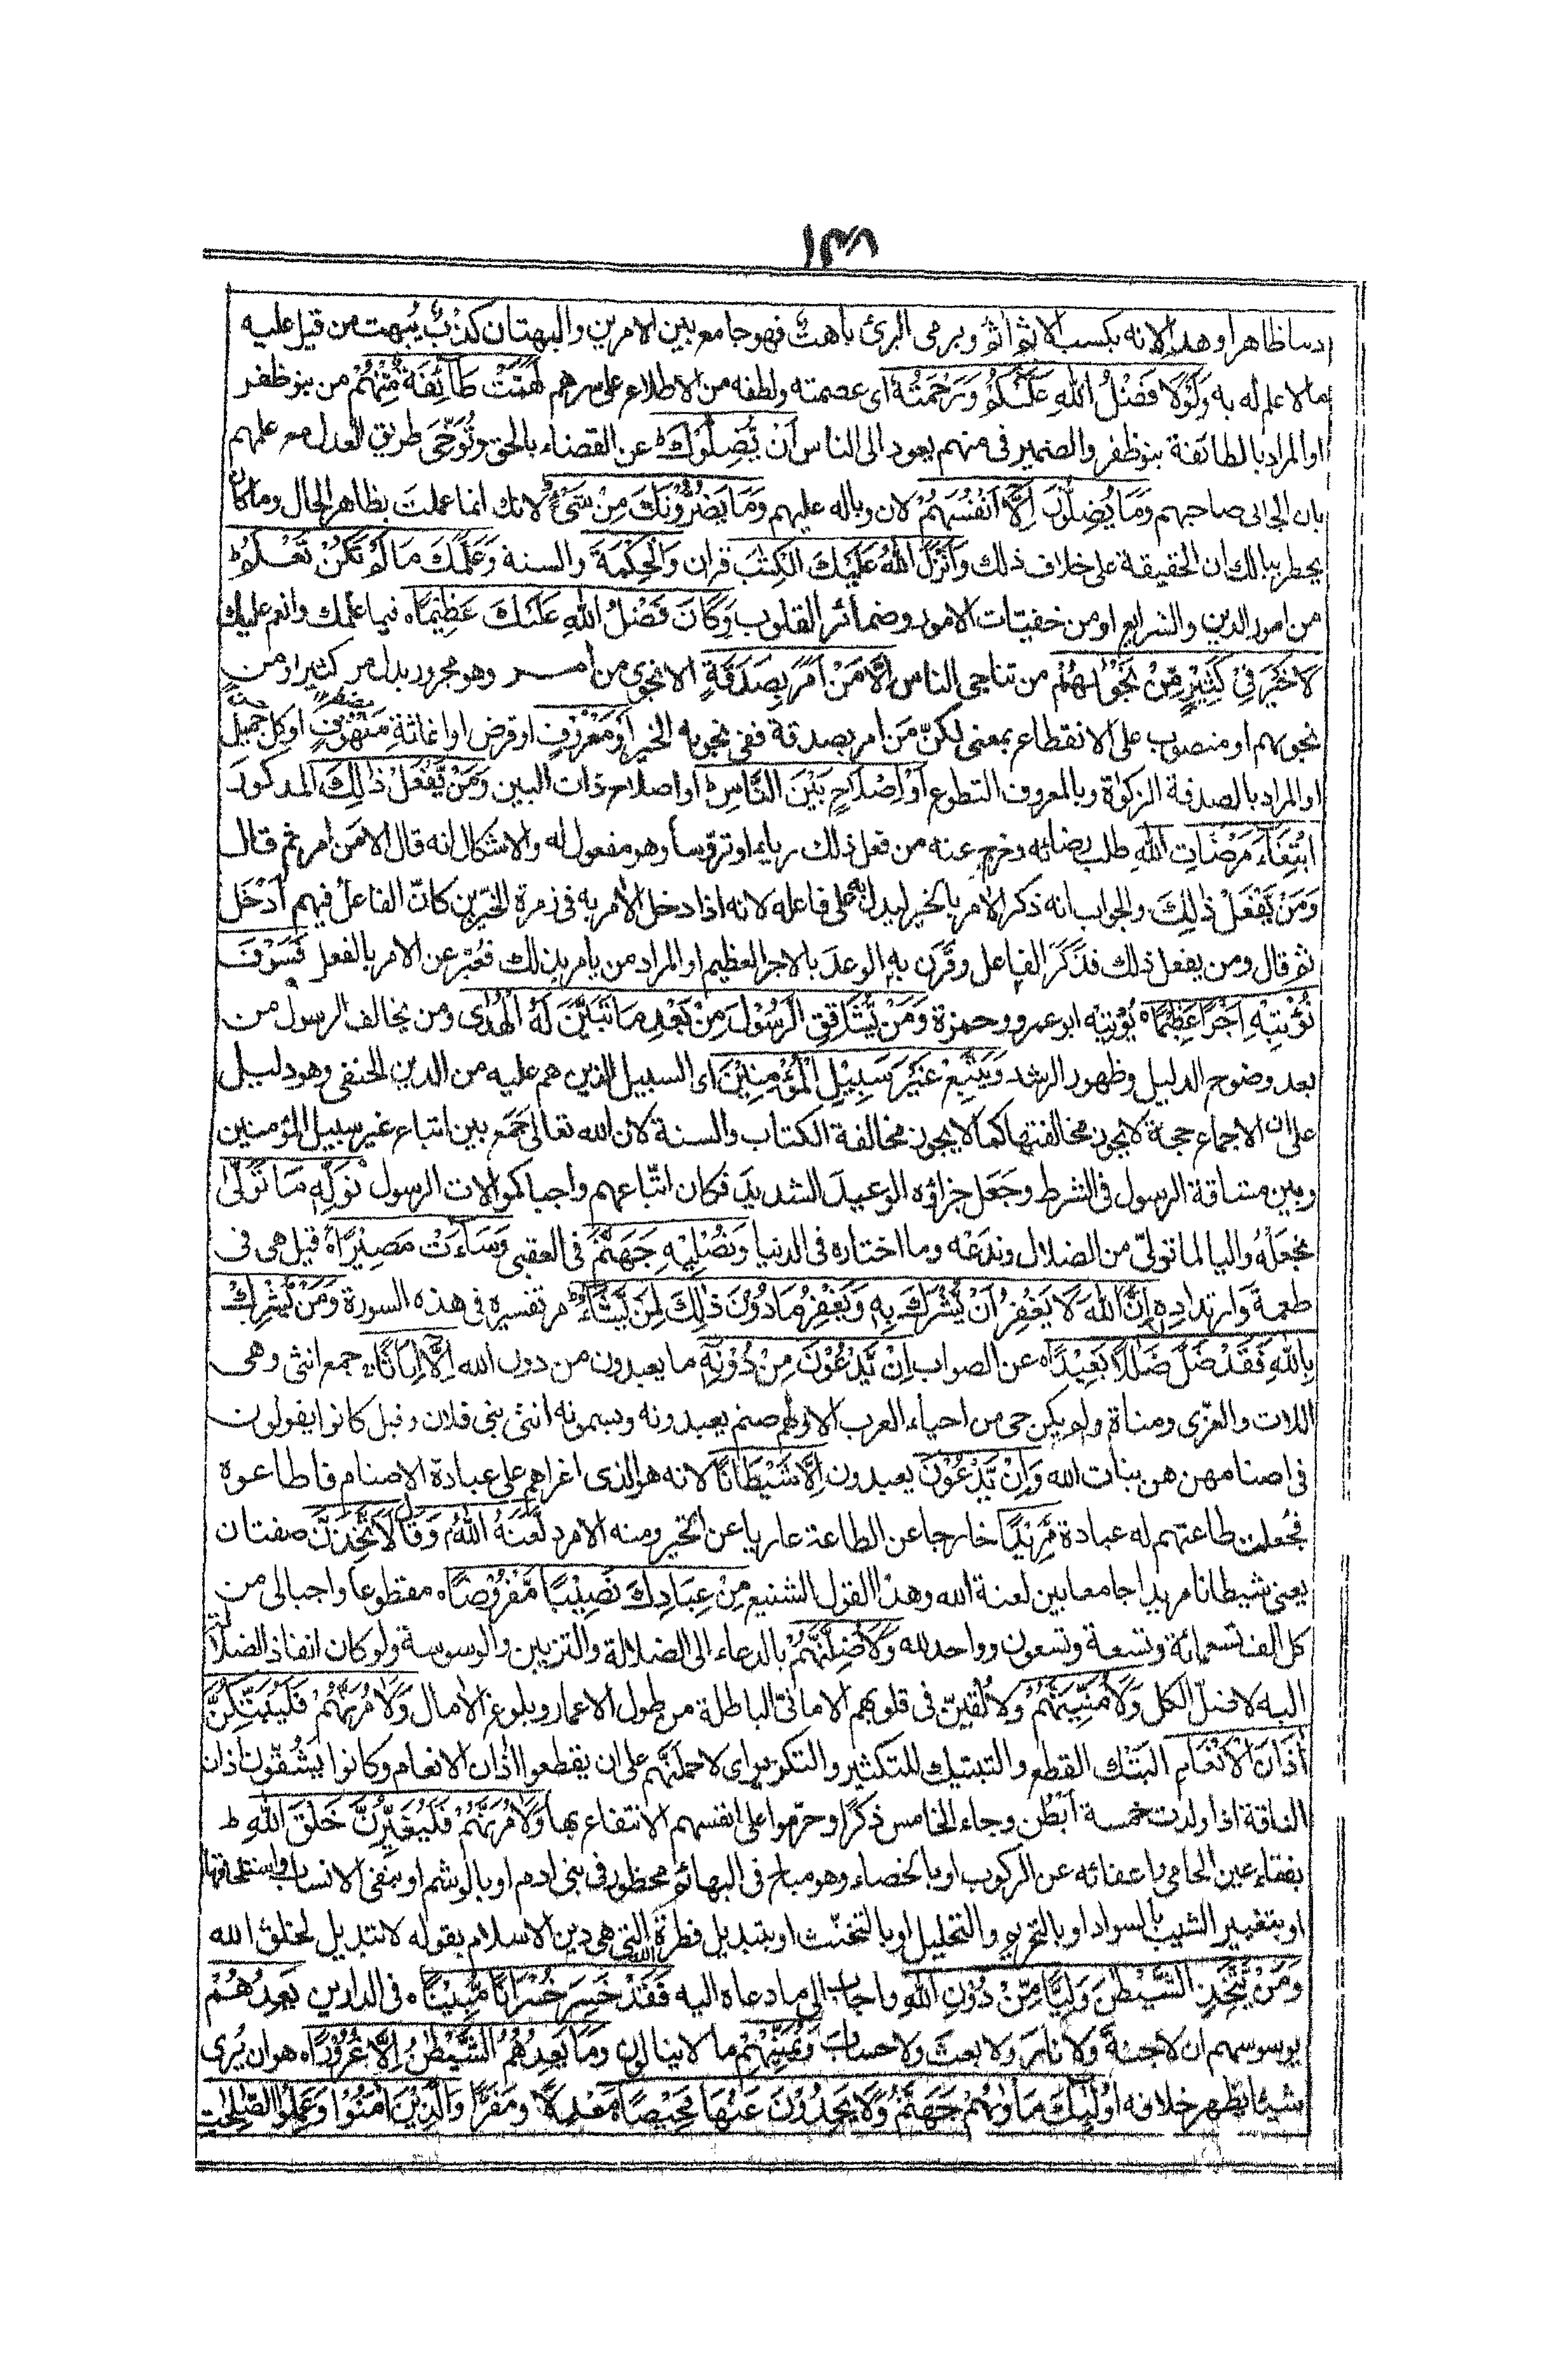 ذنبا ظاهرا وهذا لانه بكسب الاثم اثم وبرمى البرئ باهت فهو جامع بين الامرين والبهتان كذب يبهت من قيل عليه
مالا علم له به وَلَوْلَا فَضْلُ اللهِ عَلَيْكَ وَرَحْمَتُهٗ اى عصمته ولطفه من الاطلاع على سرهم لَهَمَّتْ طَآئِفَةٌ مِّنْهُمْ من بنو ظفر
او المراد بالطائفة بنو ظفر والضمير فى منهم يعود الى الناس اَنْ يُّضِلُّوْكَ ط عن القضاء بالحق وتُوَخّى طريق العدل مع علمهم
بان الجانى صاحبهم وَمَا يُضِلُّوْنَ اِلَّآ اَنْفُسَهُمْ لان وباله عليهم وَمَا يَضُرُّوْنَكَ مِنْ شَيْءٍ ط لانك انما عملت بظاهر الحال وما كان
يخطر ببالك ان الحقيقة على خلاف ذلك وَاَنْزَلَ اللهُ عَلَيْكَ الْكِتٰبَ قران وَالْحِكْمَةَ والسنة وَعَلَّمَكَ مَا لَمْ تَكُنْ تَعْلَمُ ط
من امور الدين والشرايع او من خفيّات الامور وضمائر القلوب وَكَانَ فَضْلُ اللهِ عَلَيْكَ عَظِيْمًا ه فيما علمك وانعم عليك
لَا خَيْرَ فِيْ كَثِيْرٍ مِّنْ نَّجْوٰىهُمْ من تناجى الناس اِلَّا مَنْ اَمَرَ بِصَدَقَةٍ الا نجوى من امر وهو مجرور بدل من كثير او من
نجوٰىهم او منصوب على الانقطاع بمعنى لكنّ مَن امر بصدقة ففى نجوىه الخير اَوْ مَعْرُوْفٍ او قرض او اغاثة مَلْهُوْفٍ او كل جميل
او المراد بالصدقة الزكوٰة وبالمعروف التطوع اَوْ اِصْلَاحٍ بَيْنَ النَّاسِ ط او اصلاح ذات البين وَمَنْ يَّفْعَلْ ذٰلِكَ المذكورَ
ابْتِغَآءَ مَرْضَاتِ اللهِ طلب رضائه وخرج عنه من فعل ذلك رياء او ترؤسا وهو مفعول له والاشكال انه قال الا مَن امر ثم قال
وَمَنْ يَّفْعَلْ ذٰلِكَ والجواب انه ذكر الامر بالخير ليدل به على فاعله لانه اذا دخل الامر به فى زمرة الخيّرين كانّ الفاعل فيهم اَدْخَل
ثم قال ومن يفعل ذلك فذَكَرَ الفاعل وقَرَن به الوعدَ بالاجر العظيم او المراد من يأمر بذلك فعُبّر عن الامر بالفعل فَسَوْفَ
نُؤْتِيْهِ اَجْرًا عَظِيْمًا ه يُؤتِيْه ابو عمرو وحمزة وَمَنْ يُّشَاقِقِ الرَّسُوْلَ مِنْ بَعْدِ مَا تَبَيَّنَ لَهُ الْهُدٰى ومن يخالف الرسول من
بعد وضوح الدليل وظهور الرشد وَيَتَّبِعْ غَيْرَ سَبِيْلِ الْمُؤْمِنِيْنَ اى السبيل الذين هم عليه من الدين الحنفى وهو دليل
على ان الاجماع حجة لا يجوز مخالفتها كما لا يجوز مخالفة الكتاب والسنة لان الله تعالى جَمَع بين اتباع غير سبيل المؤمنين
وبين مشاقة الرسول فى الشرط وجَعَل جزاؤه الوعيدَ الشديدَ فكان اتّباعهم واجبا كموالات الرسول نُوَلِّهٖ مَا تَوَلّٰى
نجعلْهُ واليا لما تولّى من الضلال وندَعْه وما اختاره فى الدنيا وَنُصْلِهٖ جَهَنَّمَ فى العقبى وَسَآءَتْ مَصِيْرًا ه قيل هى فى
طعمة وارتداده اِنَّ اللهَ لَا يَغْفِرُ اَنْ يُّشْرَكَ بِهٖ وَيَغْفِرُ مَا دُوْنَ ذٰلِكَ لِمَنْ يَّشَآءُ ط مر تفسيره فى هذه السورة وَمَنْ يُّشْرِكْ
بِاللهِ فَقَدْ ضَلَّ ضَلٰلًا بَعِيْدًا ه عن الصواب اِنْ يَّدْعُوْنَ مِنْ دُوْنِهٖٓ ما يعبدون من دون الله اِلَّآ اِنَاثًا ج جمع انثى وهى
اللات والعزّى ومناة ولم يكن حى من احياء العرب الا ولهم صنم يعبدونه ويسمونه انثى بنى فلان وقيل كانوا يقولون
فى اصنامهن هن بنات الله وَاِنْ يَّدْعُوْنَ يعبدون اِلَّا شَيْطَانًا لانه هو الذى اغراهم على عبادة الاصنام فاطاعوه
فجُعلت طاعتهم له عبادة مَّرِيْدًا خارجا عن الطاعة عاريا عن الخير ومنه الامرد لَعَنَهُ اللهُ وَقَالَ لَاَتَّخِذَنَّ صفتان
يعنى شيطانا مريدا جامعا بين لعنة الله وهذا القول الشنيع مِنْ عِبَادِكَ نَصِيْبًا مَّفْرُوْضًا ه مقطوعا واجبا لى من
كل الف تسعمائة وتسعة وتسعون وواحد لله وَلَاُضِلَّنَّهُمْ بالدعاء الى الضلالة والتزيين والوسوسة ولو كان انفاذ الضلالة
اليه لاضلّ الكل وَلَاُمَنِّيَنَّهُمْ ولاُلقينّ فى قلوبهم الامانىّ الباطلة من طول الاعمار وبلوغ الامال وَلَاٰمُرَنَّهُمْ فَلَيُبَتِّكُنَّ
اٰذَانَ الْاَنْعَامِ البَتْك القطع والتبتيك للتكثير والتكرير اى لاحملنّهم على ان يقطعوا اٰذان الانعام وكانوا يشُقّون اٰذان
الناقة اذا ولدت خمسة اَبْطُن وجاء الخامس ذكرًا وحرّموا على انفسهم الانتفاع بها وَلَاٰمُرَنَّهُمْ فَلَيُغَيِّرُنَّ خَلْقَ اللهِ ط
بفقاء عين الحامى واعفائه عن الركوب او بالخصاء وهو مباح فى البهائم محظور فى بنى ادم او بالوشم او بنفى الانساب واستلحاقها
او بتغيير الشيب بالسواد او بالتحريم والتحليل او بالتخنّث او بتبديل فطرة الله التى هى دين الاسلام بقوله لا تبديل لخلق الله
وَمَنْ يَّتَّخِذِ الشَّيْطٰنَ وَلِيًّا مِّنْ دُوْنِ اللهِ واجاب الى ما دعاه اليه فَقَدْ خَسِرَ خُسْرَانًا مُّبِيْنًا ه فى الدارين يَعِدُهُمْ
يوسوسهم ان لا جنةَ ولا نارَ ولا بعثَ ولا حسابَ وَيُمَنِّيْهِمْ ما لا ينالون وَمَا يَعِدُهُمُ الشَّيْطٰنُ اِلَّا غُرُوْرًا ه هو ان يُرى
شيئا يظهر خلافه اُولٰٓئِكَ مَاْوٰىهُمْ جَهَنَّمُ وَلَا يَجِدُوْنَ عَنْهَا مَحِيْصًا ه مَعْدِلًا ومَفرًّا وَالَّذِيْنَ اٰمَنُوْا وَعَمِلُوا الصّٰلِحٰتِ